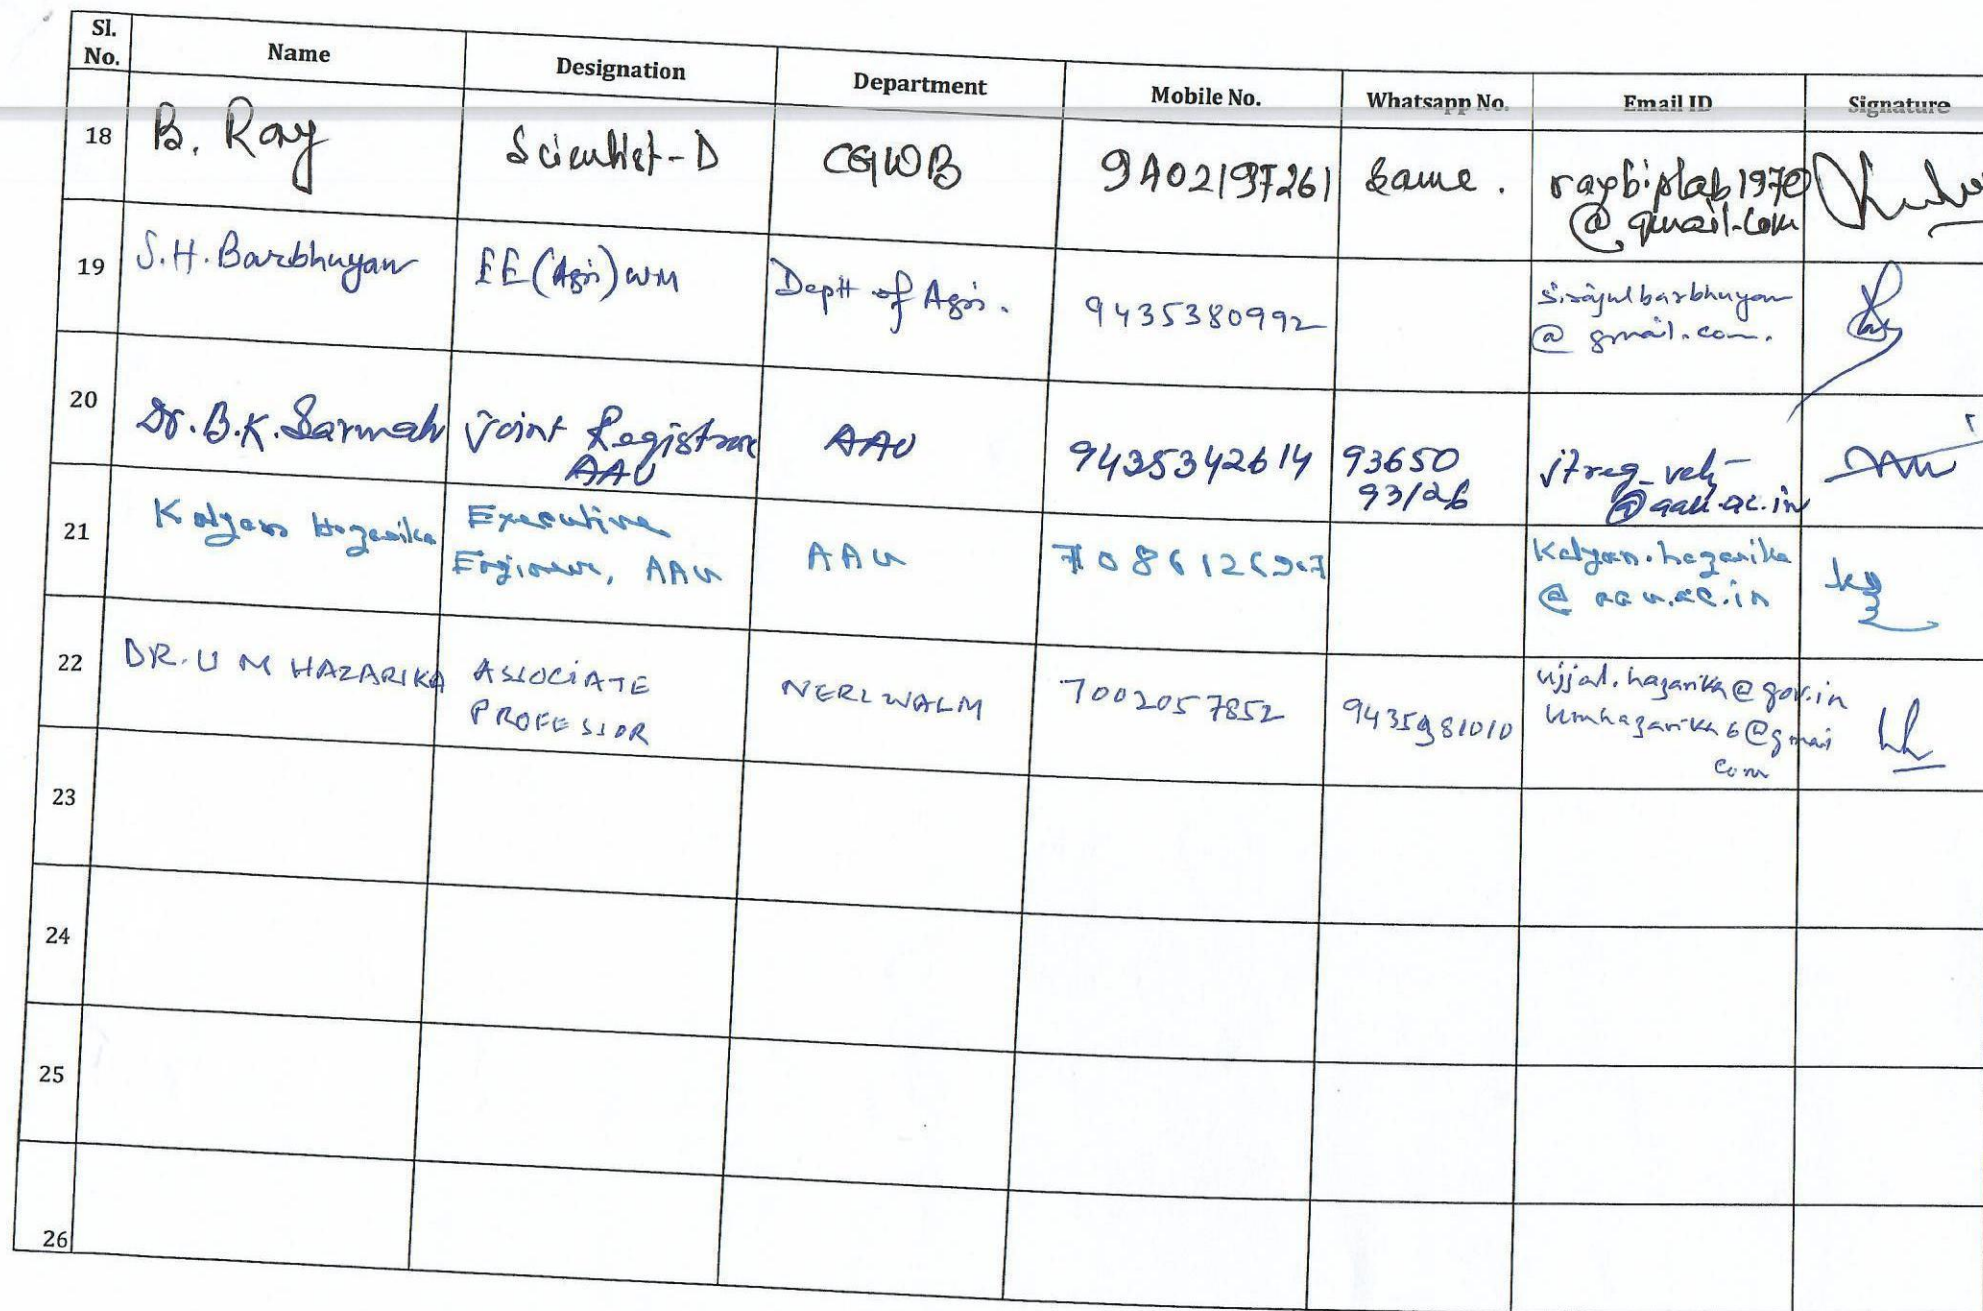 Sl. No. Name Designation Department Mobile No. Whatsapp No. Email ID Signature
18 B. Ray Scientist-D CGWB 9402197261 Same. raybiplab1970
@gmail.com
19 S.H. Barbhuyan EE(Agri)WM Deptt of Agri. 9435380992 sirajulbarbhuyan
@gmail.com.
20 Dr. B.K. Sarmah Joint Registrar AAU 9435342614 93650
AAU 93126 jtreg_vety
@aau.ac.in
21 Kalyan Hazarika Executive AAU Kalyan.hazarika
Engineer, AAU @aau.ac.in
22 DR. U M HAZARIKA ASSOCIATE NERIWALM 7002057852 9435981010 ujjal.hazarika@gov.in
PROFESSOR umhazarika6@gmai
com
23
24
25
26